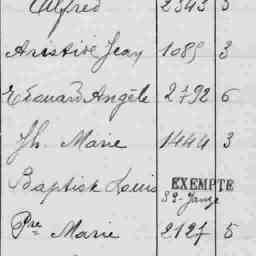 Alfred 2343 3
Aristide Jean 1089 3
Edouard Angèle 2792 6
Jh. Marie 1444 3
Baptiste Louis EXEMPTE
Pre Marie 2127 5